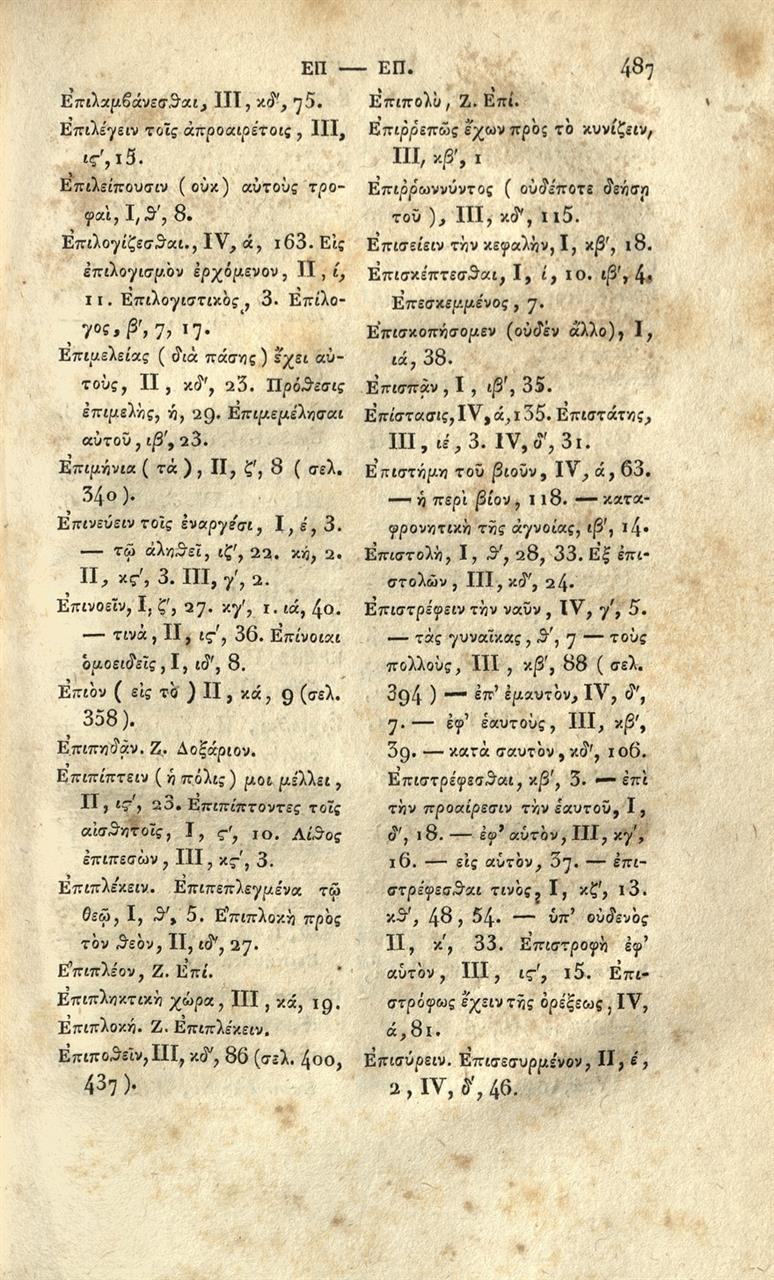 ΕΠ — ΕΠ. 487
Ἐπιλαμβάνεσθαι, III, κδʹ, 75.
Ἐπιλέγειν τοῖς ἀπροαιρέτοις, III,
ιϛʹ, 15.
Ἐπιλείπουσιν (οὐκ) αὐτοὺς τρο-
φαὶ, I, θʹ, 8.
Ἐπιλογίζεσθαι., IV, ά, 163. Εἰς
ἐπιλογισμὸν ἐρχόμενον, II, ί,
11. Ἐπιλογιστικὸς, 3. Ἐπίλο-
γος, βʹ, 7, 17.
Ἐπιμελείας (διὰ πάσης) ἔχει αὐ-
τοὺς, II, κδʹ, 23. Πρόθεσις
ἐπιμελὴς, ή, 29. Ἐπιμεμέλησαι
αὐτοῦ, ιβʹ, 23.
Ἐπιμήνια (τὰ), II, ζʹ, 8 (σελ.
340).
Ἐπινεύειν τοῖς ἐναργέσι, I, έ, 3.
— τῷ ἀληθεῖ, ιζʹ, 22. κή, 2.
II, κϛʹ, 3. III, γʹ, 2.
Ἐπινοεῖν, I, ζʹ, 27. κγʹ, 1. ιά, 40.
— τινὰ, II, ιϛʹ, 36. Ἐπίνοιαι
ὁμοειδεῖς, I, ιδʹ, 8.
Ἐπιὸν (εἰς τὸ) II, κά, 9 (σελ.
358).
Ἐπιπηδᾷν. Ζ. Δοξάριον.
Ἐπιπίπτειν (ἡ πόλις) μοι μέλλει,
II, ιϛʹ, 23. Ἐπιπίπτοντες τοῖς
αἰσθητοῖς, I, ϛʹ, 10. Λίθος
ἐπιπεσὼν, III, κϛʹ, 3.
Ἐπιπλέκειν. Ἐπιπεπλεγμένα τῷ
θεῷ, I, θʹ, 5. Ἐπιπλοκὴ πρὸς
τὸν θεὸν, II, ιδʹ, 27.
Ἐπιπλέον, Ζ. Ἐπί.
Ἐπιπληκτικὴ χώρα, III, κά, 19.
Ἐπιπλοκή. Ζ. Ἐπιπλέκειν.
Ἐπιποθεῖν, III, κδʹ, 86 (σελ. 400,
437).
Ἐπιπολὺ, Ζ. Ἐπί.
Ἐπιῤῥεπῶς ἔχων πρὸς τὸ κυνίζειν,
III, κβʹ, 1
Ἐπιῤῥωννύντος (οὐδέποτε δεήσῃ
τοῦ), III, κδʹ, 115.
Ἐπισείειν τὴν κεφαλὴν, I, κβʹ, 18.
Ἐπισκέπτεσθαι, I, ί, 10. ιβʹ, 4.
Ἐπεσκεμμένος, 7.
Ἐπισκοπήσομεν (οὐδὲν ἄλλο), I,
ιά, 38.
Ἐπισπᾷν, I, ιβʹ, 35.
Ἐπίστασις, IV, ά, 135. Ἐπιστάτης,
III, ιέ, 3. IV, δʹ, 31.
Ἐπιστήμη τοῦ βιοῦν, IV, ά, 63.
— ἡ περὶ βίον, 118. — κατα-
φρονητικὴ τῆς ἀγνοίας, ιβʹ, 14.
Ἐπιστολὴ, I, θʹ, 28, 33. Ἐξ ἐπι-
στολῶν, III, κδʹ, 24.
Ἐπιστρέφειν τὴν ναῦν, IV, γʹ, 5.
— τὰς γυναῖκας, θʹ, 7 — τοὺς
πολλοὺς, III, κβʹ, 88 (σελ.
394) — ἐπ’ ἐμαυτὸν, IV, δʹ,
7. — ἐφ’ ἑαυτοὺς, III, κβʹ,
39. — κατὰ σαυτὸν, κδʹ, 106.
Ἐπιστρέφεσθαι, κβʹ, 3. — ἐπὶ
τὴν προαίρεσιν τὴν ἑαυτοῦ, I,
δʹ, 18. — ἐφ’ αὑτὸν, III, κγʹ,
16. — εἰς αὑτὸν, 37. — ἐπι-
στρέφεσθαι τινὸς, I, κζʹ, 13.
κθʹ, 48, 54. — ὑπ’ οὐδενὸς
II, κʹ, 33. Ἐπιστροφὴ ἐφ’
αὑτὸν, III, ιϛʹ, 15. Ἐπι-
στρόφως ἔχειν τῆς ὀρέξεως, IV,
ά, 81.
Ἐπισύρειν. Ἐπισεσυρμένον, II, έ,
2, IV, δʹ, 46.